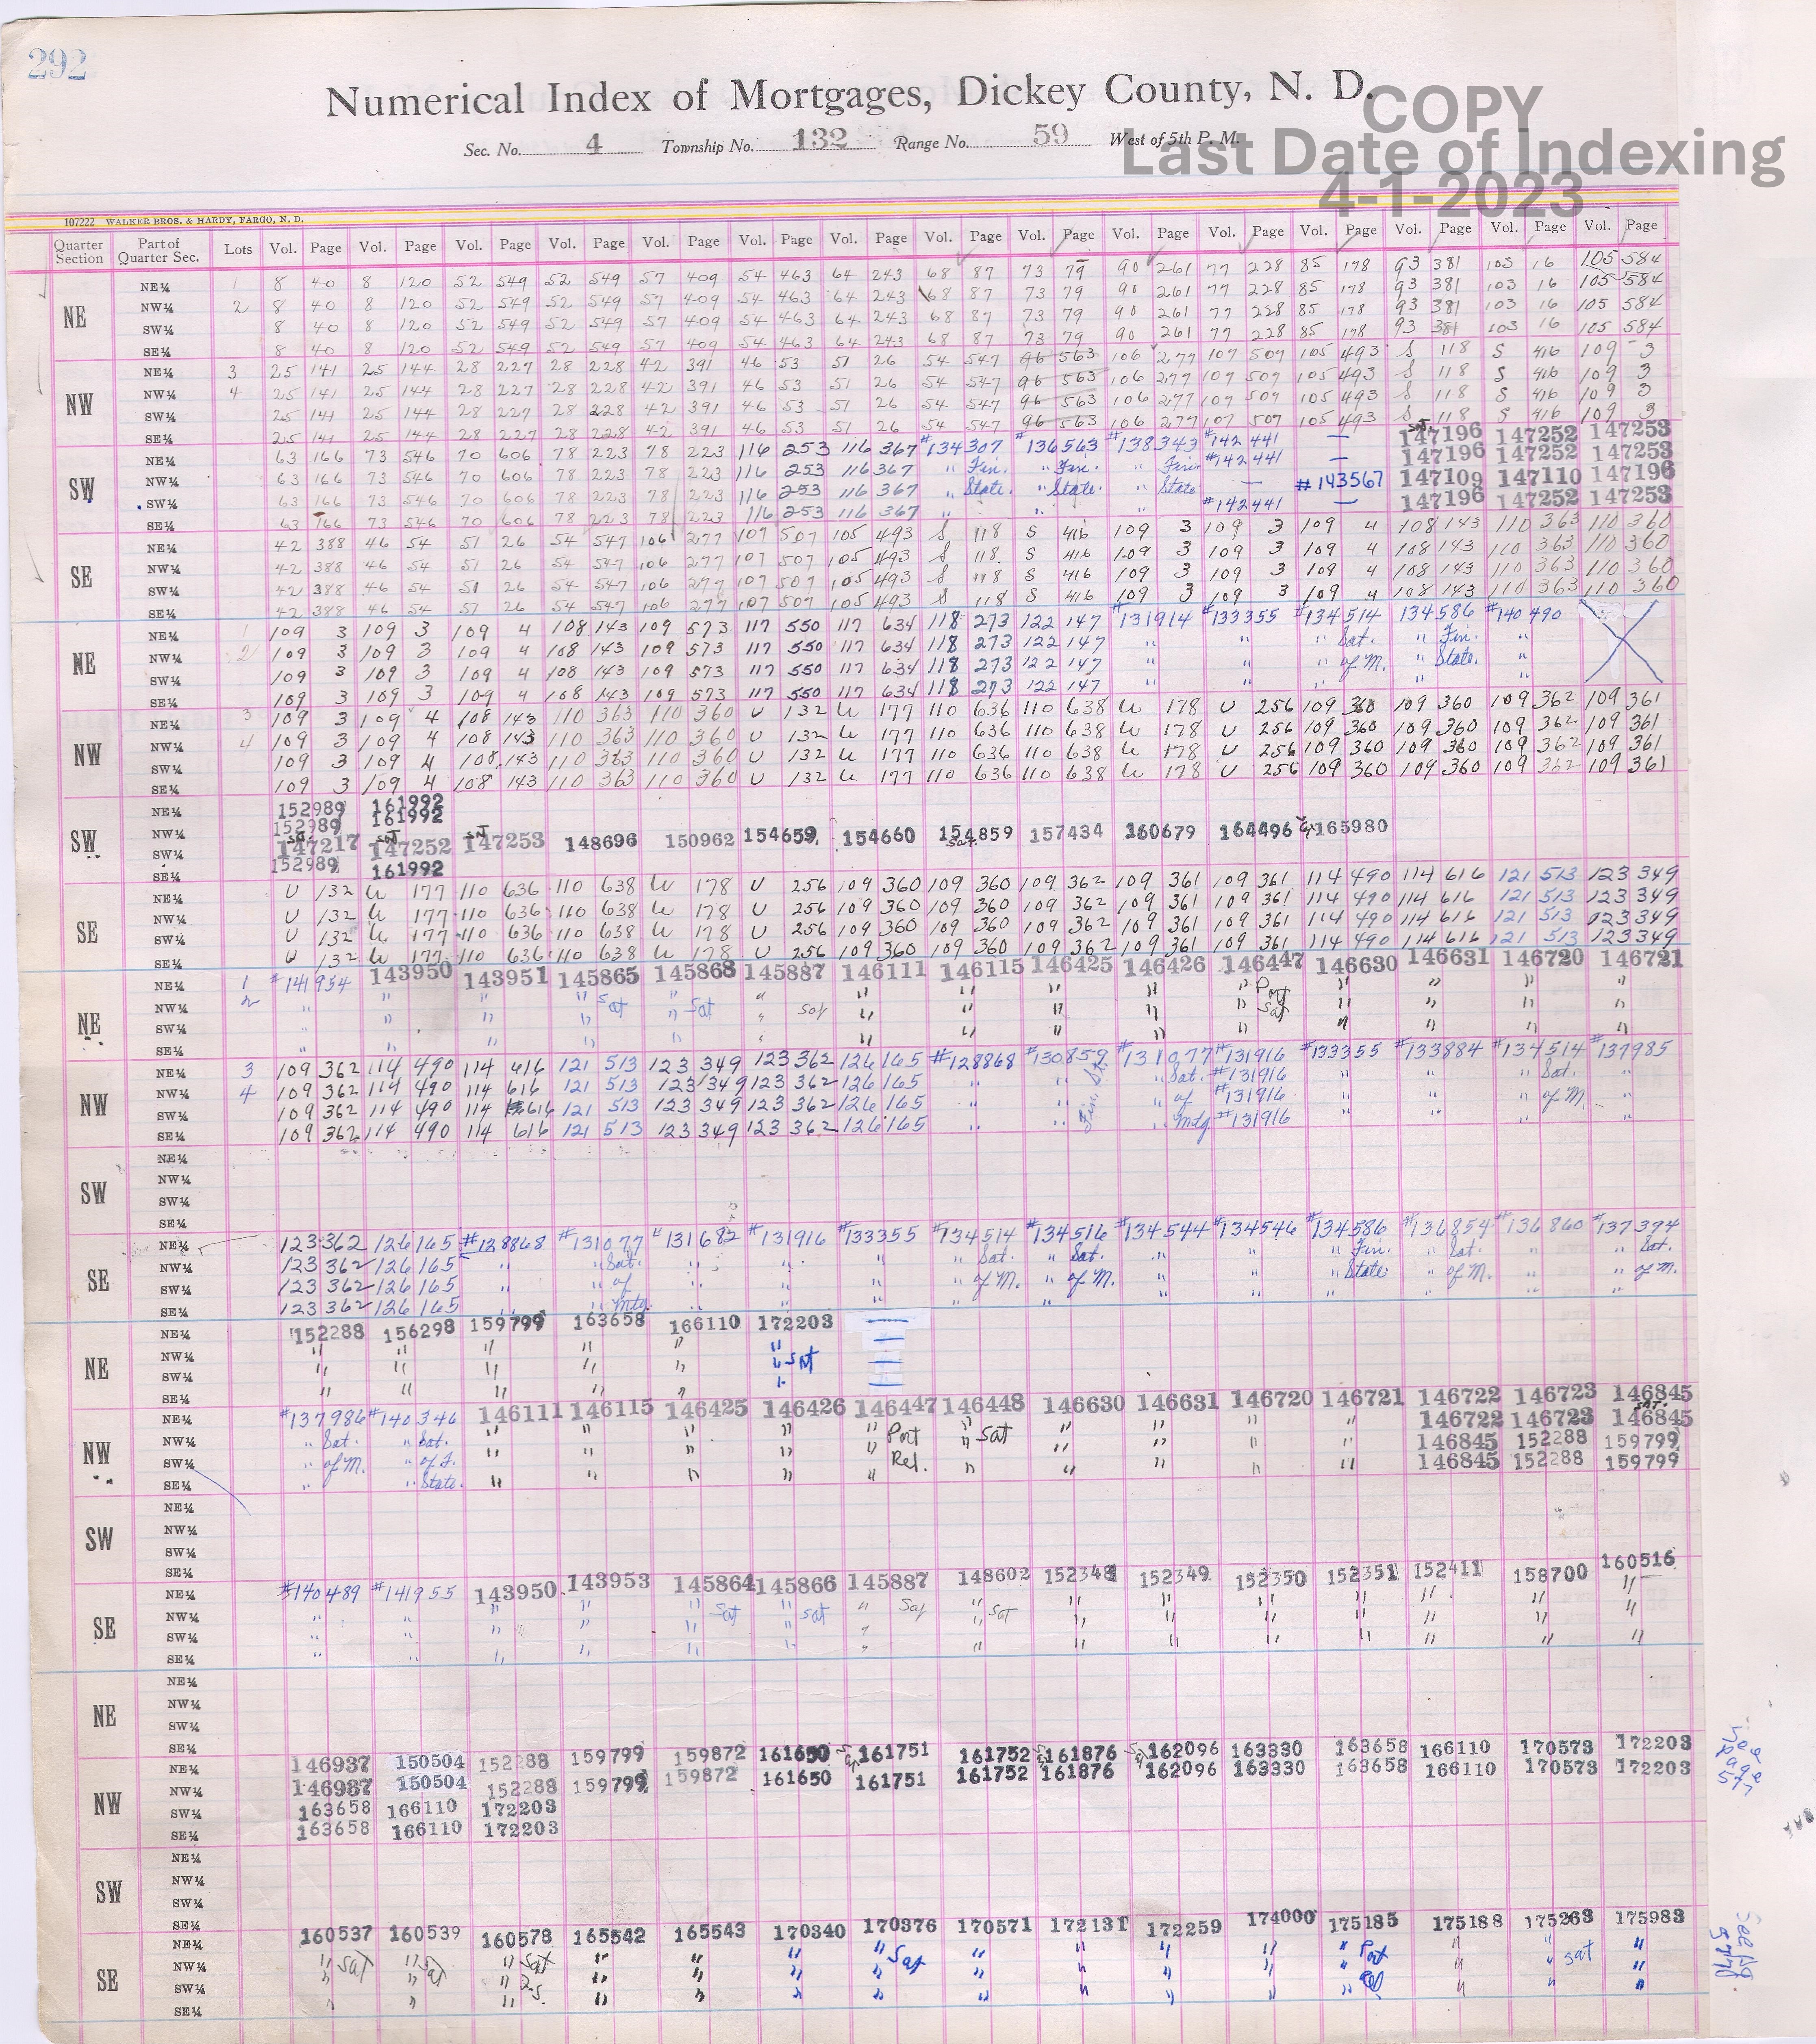 292
Numerical Index of Mortgages, Dickey County, N. D.
COPY
Last Date of Indexing
4-1-2023
Sec. No. 4 Township No. 132 Range No. 59 West of 5th P. M.
107222 WALKER BROS. & HARDY, FARGO, N. D.
Quarter Section Part of Quarter Sec. Lots Vol. Page Vol. Page Vol. Page Vol. Page Vol. Page Vol. Page Vol. Page Vol. Page Vol. Page Vol. Page Vol. Page Vol. Page Vol. Page Vol. Page Vol. Page
NE
NE¼ 1 8 40 8 120 52 549 52 549 57 409 54 463 64 243 68 87 73 79 90 261 77 228 85 178 93 381 103 16 105 584
NW¼ 2 8 40 8 120 52 549 52 549 57 409 54 463 64 243 68 87 73 79 90 261 77 228 85 178 93 381 103 16 105 584
SW¼ 8 40 8 120 52 549 52 549 57 409 54 463 64 243 68 87 73 79 90 261 77 228 85 178 93 381 103 16 105 584
SE¼ 8 40 8 120 52 549 52 549 57 409 54 463 64 243 68 87 73 79 90 261 77 228 85 178 93 381 103 16 105 584
NW
NE¼ 3 25 141 25 144 28 227 28 228 42 391 46 53 51 26 54 547 96 563 106 277 107 507 105 493 S 118 S 416 109 3
NW¼ 4 25 141 25 144 28 227 28 228 42 391 46 53 51 26 54 547 96 563 106 277 107 507 105 493 S 118 S 416 109 3
SW¼ 25 141 25 144 28 227 28 228 42 391 46 53 51 26 54 547 96 563 106 277 107 507 105 493 S 118 S 416 109 3
SE¼ 25 141 25 144 28 227 28 228 42 391 46 53 51 26 54 547 96 563 106 277 107 507 105 493 S 118 S 416 109 3
SW
NE¼ 63 166 73 546 70 606 78 223 78 223 116 253 116 367 #134307 #136563 #138343 #142441 — Sat. 147196 147252 147253
NW¼ 63 166 73 546 70 606 78 223 78 223 116 253 116 367 " Fin. " Fin. " Fin. #142441 — 147196 147252 147253
SW¼ 63 166 73 546 70 606 78 223 78 223 116 253 116 367 " State. " State. " State — #143567 147109 147110 147196
SE¼ 63 166 73 546 70 606 78 223 78 223 116 253 116 367 " " " #142441 — 147196 147252 147253
SE
NE¼ 42 388 46 54 51 26 54 547 106 277 107 507 105 493 S 118 S 416 109 3 109 3 109 4 108 143 110 363 110 360
NW¼ 42 388 46 54 51 26 54 547 106 277 107 507 105 493 S 118 S 416 109 3 109 3 109 4 108 143 110 363 110 360
SW¼ 42 388 46 54 51 26 54 547 106 277 107 507 105 493 S 118 S 416 109 3 109 3 109 4 108 143 110 363 110 360
SE¼ 42 388 46 54 51 26 54 547 106 277 107 507 105 493 S 118 S 416 109 3 109 3 109 4 108 143 110 363 110 360
NE
NE¼ 1 109 3 109 3 109 4 108 143 109 573 117 550 117 634 118 273 122 147 #131914 #133355 #134514 134586 #140490
NW¼ 2 109 3 109 3 109 4 108 143 109 573 117 550 117 634 118 273 122 147 " " " Sat. " Fin. "
SW¼ 109 3 109 3 109 4 108 143 109 573 117 550 117 634 118 273 122 147 " " " of M. " State. "
SE¼ 109 3 109 3 109 4 108 143 109 573 117 550 117 634 118 273 122 147 " " " " "
NW
NE¼ 3 109 3 109 4 108 143 110 363 110 360 U 132 U 177 110 636 110 638 U 178 U 256 109 360 109 360 109 362 109 361
NW¼ 4 109 3 109 4 108 143 110 363 110 360 U 132 U 177 110 636 110 638 U 178 U 256 109 360 109 360 109 362 109 361
SW¼ 109 3 109 4 108 143 110 363 110 360 U 132 U 177 110 636 110 638 U 178 U 256 109 360 109 360 109 362 109 361
SE¼ 109 3 109 4 108 143 110 363 110 360 U 132 U 177 110 636 110 638 U 178 U 256 109 360 109 360 109 362 109 361
SW
NE¼ 152989 161992
NW¼ 152989 161992
SW¼ 147217 147252 147253 148696 150962 154659 154660 154859 157434 160679 164496 165980
SE¼ 152989 161992
SE
NE¼ U 132 U 177 110 636 110 638 U 178 U 256 109 360 109 360 109 362 109 361 109 361 114 490 114 616 121 513 123 349
NW¼ U 132 U 177 110 636 110 638 U 178 U 256 109 360 109 360 109 362 109 361 109 361 114 490 114 616 121 513 123 349
SW¼ U 132 U 177 110 636 110 638 U 178 U 256 109 360 109 360 109 362 109 361 109 361 114 490 114 616 121 513 123 349
SE¼ U 132 U 177 110 636 110 638 U 178 U 256 109 360 109 360 109 362 109 361 109 361 114 490 114 616 121 513 123 349
NE
NE¼ 1 #141954 143950 143951 145865 145868 145887 146111 146115 146425 146426 146447 146630 146631 146720 146721
NW¼ 2 " " " " Sat " Sat " Sat " " " " " Part Sat " " " "
SW¼ " " " " " " " " " " " " " " "
SE¼ " " " " " " " " " " " " " " "
NW
NE¼ 3 109 362 114 490 114 616 121 513 123 349 123 362 126 165 #128868 #130859 #131077 #131916 #133355 #133884 #134514 #137985
NW¼ 4 109 362 114 490 114 616 121 513 123 349 123 362 126 165 " " Fin. St. " Sat. #131916 " " " Sat. "
SW¼ 109 362 114 490 114 616 121 513 123 349 123 362 126 165 " " " of #131916 " " " of M. "
SE¼ 109 362 114 490 114 616 121 513 123 349 123 362 126 165 " " " Mtg #131916 " " " "
SW
NE¼
NW¼
SW¼
SE¼
SE
NE¼ 123 362 126 165 #128868 #131077 #131682 #131916 #133355 #134514 #134516 #134544 #134546 #134586 #136854 #136860 #137394
NW¼ 123 362 126 165 " " Sat. " " " " Sat. " Sat. " " " Fin. " Sat. " " Sat.
SW¼ 123 362 126 165 " " of " " " " of M. " of M. " " " State. " of M. " " of M.
SE¼ 123 362 126 165 " " Mtg. " " " " " " " " " " "
NE
NE¼ 152288 156298 159799 163658 166110 172203 —
NW¼ " " " " " " —
SW¼ " " " " " " Sat —
SE¼ " " " " " " —
NW
NE¼ #137986 #140346 146111 146115 146425 146426 146447 146448 146630 146631 146720 146721 146722 146723 146845
NW¼ " Sat. " Sat. " " " " " Part " Sat " " " " 146722 146723 146845
SW¼ " of M. " of F. " " " " " Rel. " " " " " 146845 152288 159799
SE¼ " " State. " " " " " " " " " " 146845 152288 159799
SW
NE¼
NW¼
SW¼
SE¼
SE
NE¼ #140489 #141955 143950 143953 145864 145866 145887 148602 152348 152349 152350 152351 152411 158700 160516
NW¼ " " " " " Sat " Sat " Sat " Sat " " " " " " "
SW¼ " " " " " " " " " " " " " " "
SE¼ " " " " " " " " " " " " " " "
NE
NE¼
NW¼
SW¼
SE¼
NW
NE¼ 146937 150504 152288 159799 159872 161650 161751 161752 161876 162096 163330 163658 166110 170573 172203
NW¼ 146937 150504 152288 159799 159872 161650 161751 161752 161876 162096 163330 163658 166110 170573 172203
SW¼ 163658 166110 172203
SE¼ 163658 166110 172203
See page 597
SW
NE¼
NW¼
SW¼
SE¼
SE
NE¼ 160537 160539 160578 165542 165543 170340 170376 170571 172131 172259 174000 175185 175188 175263 175983
NW¼ " Sat " Sat " Sat " " " " Sat " " " " " Part " " Sat "
SW¼ " " " " " " " " " " " " Rel " " "
SE¼ " " " " " " " " " " " " " " "
See pg.